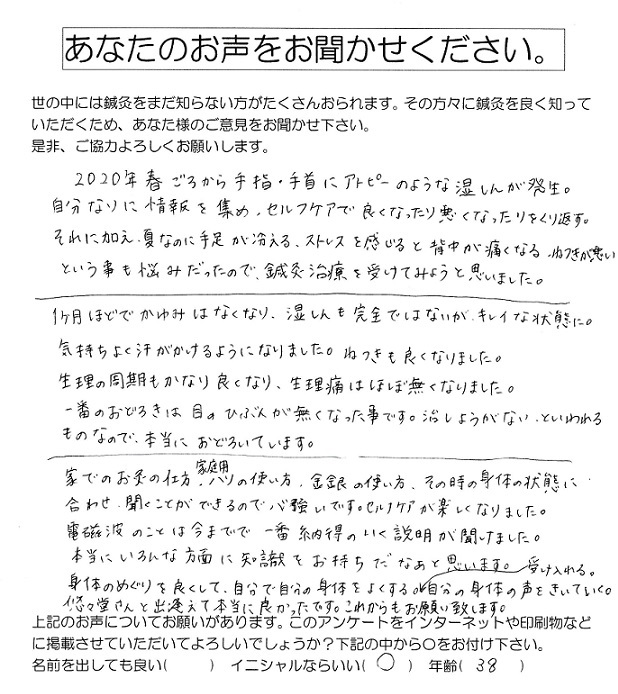 あなたのお声をお聞かせください。
世の中には鍼灸をまだ知らない方がたくさんおられます。その方々に鍼灸を良く知って
いただくため、あなた様のご意見をお聞かせ下さい。
是非、ご協力よろしくお願いします。
2020年春ごろから手指・手首にアトピーのような湿しんが発生。
自分なりに情報を集め、セルフケアで良くなったり悪くなったりをくり返す。
それに加え、夏なのに手足が冷える、ストレスを感じると背中が痛くなる、ねつきが悪い
という事も悩みだったので、鍼灸治療を受けてみようと思いました。
1ヶ月ほどでかゆみはなくなり、湿しんも完全ではないが、キレイな状態に。
気持ちよく汗がかけるようになりました。ねつきも良くなりました。
生理の周期もかなり良くなり、生理痛はほぼ無くなりました。
一番のおどろきは目のひぶんが無くなった事です。治しようがない、といわれる
ものなので、本当におどろいています。
家でのお灸の仕方、家庭用バリの使い方、金銀の使い方、その時の身体の状態に
合わせ、聞くことができるので心強いです。セルフケアが楽しくなりました。
電磁波のことは今までで一番納得のいく説明が聞けました。
本当にいろんな方面に知識をお持ちだなぁと思います。受け入れる。
身体のめぐりを良くして、自分で自分の身体をよくする。自分の身体の声をきいていく。
悠々堂さんと出逢えて本当に良かったです。これからもお願い致します。
上記のお声についてお願いがあります。このアンケートをインターネットや印刷物など
に掲載させていただいてよろしいでしょうか？下記の中から〇をお付け下さい。
名前を出しても良い( ) イニシャルならいい( 〇 ) 年齢( 38 )